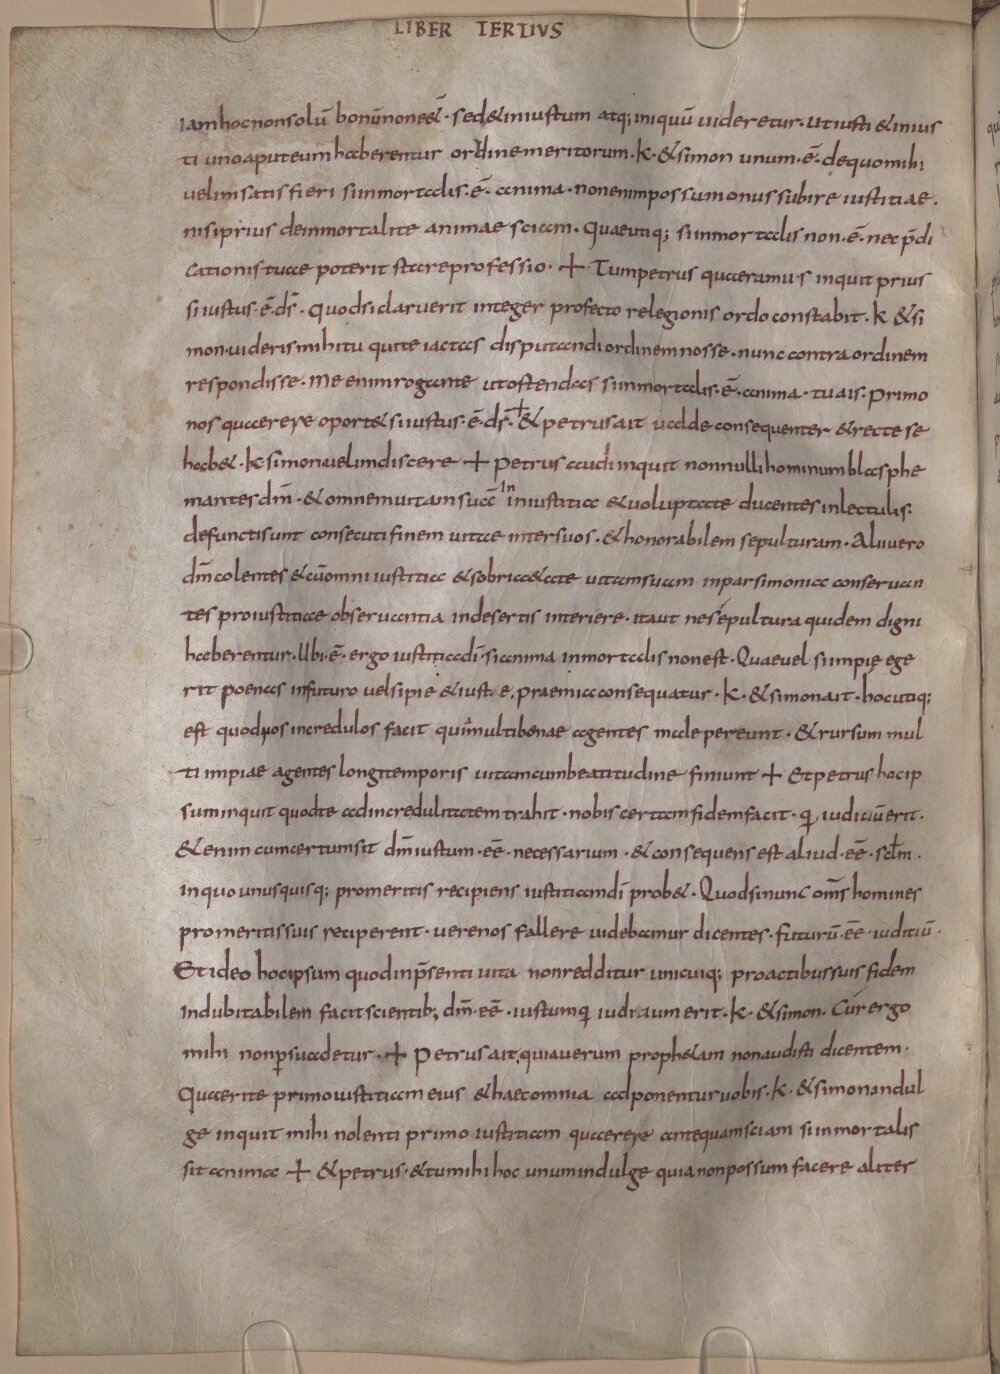 LIBER TERTIVS
iam hoc non solū bonū non eēt · sed & iniustum atq; iniquū uideretur · ut iusti & inius
ti uno aput eum haberentur ordine meritorum · K · & simon unum · ē · de quo mihi
uelim satis fieri si inmortalis · ē · anima · non enim possum onus subire iustitiae ·
nisi prius de inmortalite animae sciam · Quae utiq; si inmortalis non · ē · nec p̄di
cationis tuae poterit stare professio · ✝ Tum petrus quaeramus inquit prius
si iustus · ē · ds̄ · quod si claruerit integer profecto relegionis ordo constabit · K & si
mon · uideris mihi tu qui te iactas disputandi ordinem nosse · nunc contra ordinem
respondisse · me enim rogante ut ostendas si inmortalis · ē · anima · tu ais · primo
nos quaerere oport& si iustus · ē · ds̄ · ✝ & petrus ait ualde consequenter & recte se
hab& · K simon uelim discere ✝ petrus audi inquit nonnulli hominum blasphe
mantes dm̄ · & omnem uitam suā in iniustitia & uoluptate ducentes in lectulis ·
defuncti sunt consecuti finem uitae inter suos · & honorabilem sepulturam · Alii uero
dm̄ colentes & cū omni iustitia & sobri&ate uitam suam in parsimonia conseruan
tes pro iustitiae obseruantia in desertis interiere · ita ut ne sepultura quidem digni
haberentur · Ubi · ē · ergo iustitia dī · si anima inmortalis non est · Quae uel si impię ege
rit poenas in futuro uel si pie & iuste · praemia consequatur · K · & simon ait · hoc utiq;
est quod nos incredulos facit quia multi bene agentes male pereunt · & rursum mul
ti impiae agentes longi temporis uitam cum beatitudine finiunt ✝ Et petrus hoc ip
sum inquit quod te ad incredulitatem trahit · nobis certam fidem facit · q̣ iudiciū erit ·
& enim cum certum sit dm̄ iustum · eē · necessarium · & consequens est aliud · eē · sclm̄ ·
in quo unusquisq; pro meritis recipiens iustitiam dī prob& · Quod si nunc om̄s homines
pro meritis suis reciperent · uere nos fallere uidebamur dicentes · futurū · eē · iuditiū ·
Et ideo hoc ipsum quod in p̄senti uita non redditur unicuiq; pro actibus suis fidem
indubitabilem facit scientib; dm̄ · eē · iustum q̣ iudicium erit · K · & simon · Cur ergo
mihi non p̄suadetur · ✝ Petrus ait, quia uerum proph&am non audisti dicentem ·
Quaerite primo iustitiam eius & haec omnia adponentur uobis · K · & simon indul
ge inquit mihi nolenti primo iustitiam quaerere antequam sciam si inmortalis
sit anima ✝ & petrus · & tu mihi hoc unum indulge quia non possum facere aliter